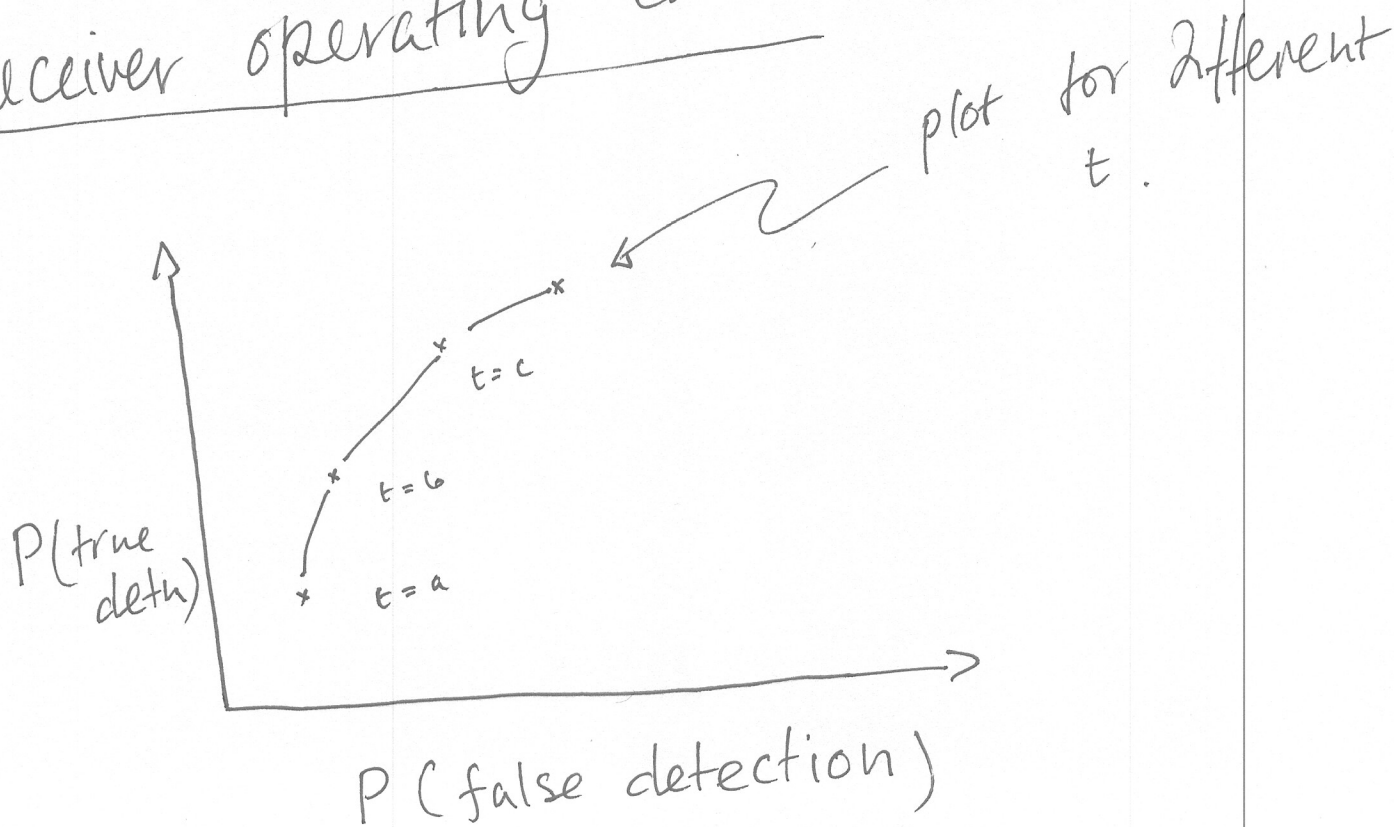 operating
plot for different
t.
t = c
t = b
t = a
P(true
detn)
P(false detection)